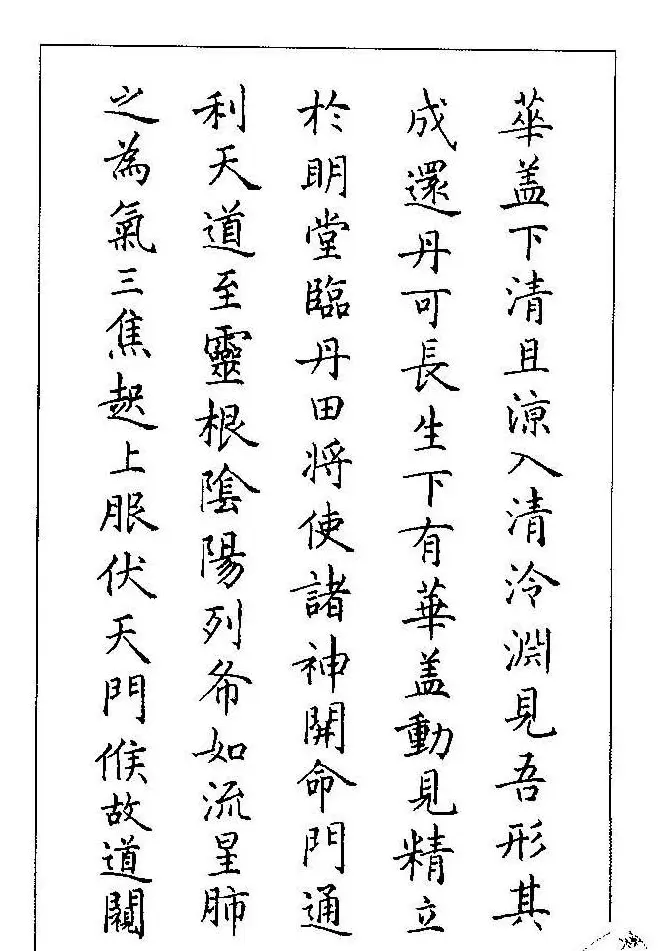 華盖下清且涼入清泠淵見吾形其
成還丹可長生下有華盖動見精立
於明堂臨丹田将使諸神開命門通
利天道至靈根陰陽列布如流星肺
之為氣三焦起上服伏天門候故道闚